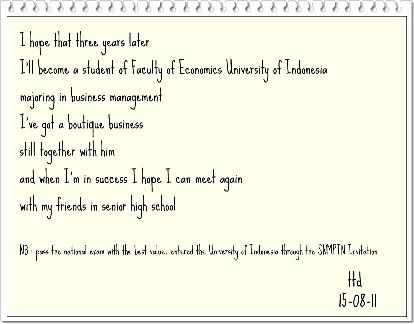 I hope that three years later
I'll become a student of Faculty of Economics University of Indonesia
majoring in business management
I've got a boutique business
still together with him
and when I'm in success I hope I can meet again
with my friends in senior high school
NB : pass the national exam with the best value, entered the University of Indonesia through the SNMPTN Invitation
Ttd
15-08-11